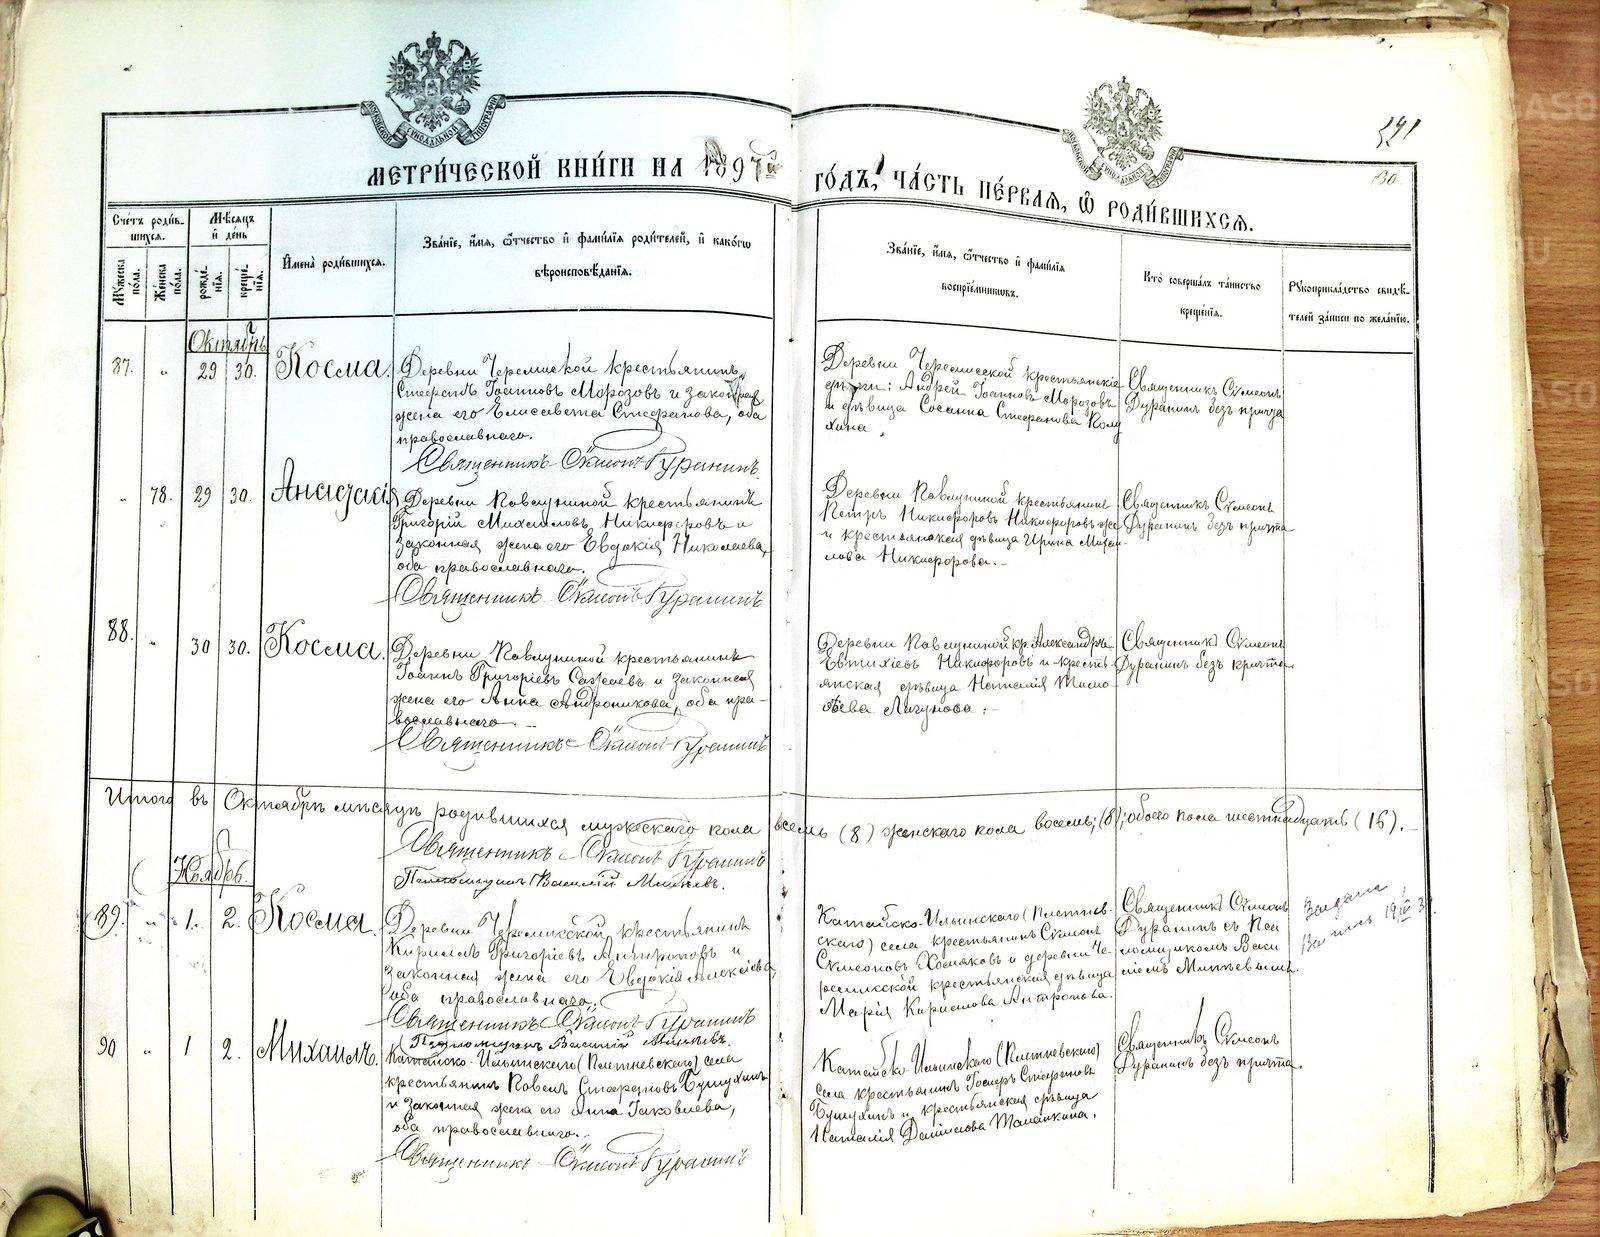 МОСКОВСКОЙ СУНОДАЛЬНОЙ ТИПОГРАФІИ
МОСКОВСКОЙ СУНОДАЛЬНОЙ ТИПОГРАФІИ
МЕТРИ́ЧЕСКОЙ КНИ́ГИ НА 1897й ГО́ДЪ, ЧА́СТЬ ПЕ́РВАЯ, Ѽ РОДИ́ВШИХСЯ.
130.
Сче́тъ роди́в-
шихся.
Мѣ́сяцъ
и҆ де́нь
Му́жеска
по́ла.
Же́нска
по́ла.
рожде́-
нїя.
креще́-
нїя.
И҆мена̀ роди́вшихся.
Зва́нїе, и҆́мя, ѻ҆́тчество и҆ фами́лїя роди́телей, и҆ како́гѡ
вѣроисповѣ́данїя.
Зва́нїе, и҆́мя, ѻ҆́тчество и҆ фами́лїя
воспрїе́мниковъ.
Кто̀ соверша́лъ та́инство
креще́нїя.
Рукоприкла́дство свидѣ́-
телей за́писи по жела́нїю.
Октябрь
87. „ 29 30. Косма.
Деревни Черемисской крестьянинъ
Стефанъ Іоанновъ Морозовъ и законная
жена его Елисавета Стефанова, оба
православнаго.
Священникъ Сѵмеонъ Дуранинъ
Деревни Черемисской крестьянскіе
дѣти: Андрей Іоанновъ Морозовъ
и дѣвица Сосанна Стефанова
Священникъ Сѵмеонъ
Дуранинъ безъ причта
„ 78. 29 30. Анастасія
Деревни Павлуниной крестьянинъ
Григорій Михаиловъ Никифоровъ и
законная жена его Евдокія Николаева,
оба православнаго.
Священникъ Сѵмеонъ Дуранинъ
Деревни Павлуниной крестьянинъ
Петръ Никифоровъ Никифоровъ же
и крестьянская дѣвица Ирина Михаи-
лова Никифорова.
Священникъ Сѵмеонъ
Дуранинъ безъ причта
88. „ 30 30. Косма.
Деревни Павлуниной крестьянинъ
Іоаннъ Григоріевъ и законная
жена его Анна Андроникова, оба пра-
вославнаго.
Священникъ Сѵмеонъ Дуранинъ
Деревни Павлуниной кр. Александръ
Евтихіевъ Никифоровъ и кресть-
янская дѣвица Наталія Тимо-
ѳеева Лагунова.
Священникъ Сѵмеонъ
Дуранинъ безъ причта
Итого въ Октябрѣ мѣсяцѣ родившихся мужескаго пола восемь (8) женскаго пола восемь (8), обоего пола шестнадцать (16).
Священникъ Сѵмеонъ Дуранинъ
Псаломщикъ Василій
Ноябрь.
89. „ 1. 2. Косма.
Деревни Черемисской крестьянинъ
Кириллъ Григоріевъ Антроповъ и
законная жена его Евдокія Алексіева,
оба православнаго.
Священникъ Сѵмеонъ Дуранинъ
Псаломщикъ Василій
Катайско-Ильинскаго (Плетнев-
скаго) села крестьянинъ Сѵмеонъ
Сѵмеоновъ Хомяковъ и деревни Че-
ремисской крестьянская дѣвица
Марія Кириллова Антропова.
Священникъ Сѵмеонъ
Дуранинъ съ Пса-
ломщикомъ Васи-
ліемъ
90 „ 1 2. Михаилъ.
Катайско-Ильинскаго (Плетневскаго) села
крестьянинъ Павелъ Стефановъ Бушухинъ
и законная жена его Анна Іаковлева,
оба православнаго.
Священникъ Сѵмеонъ Дуранинъ
Катайско-Ильинскаго (Плетневскаго)
села крестьянинъ Іосифъ Стефановъ
Бушухинъ и крестьянская дѣвица
Наталія Даніилова
Священникъ Сѵмеонъ
Дуранинъ безъ причта.